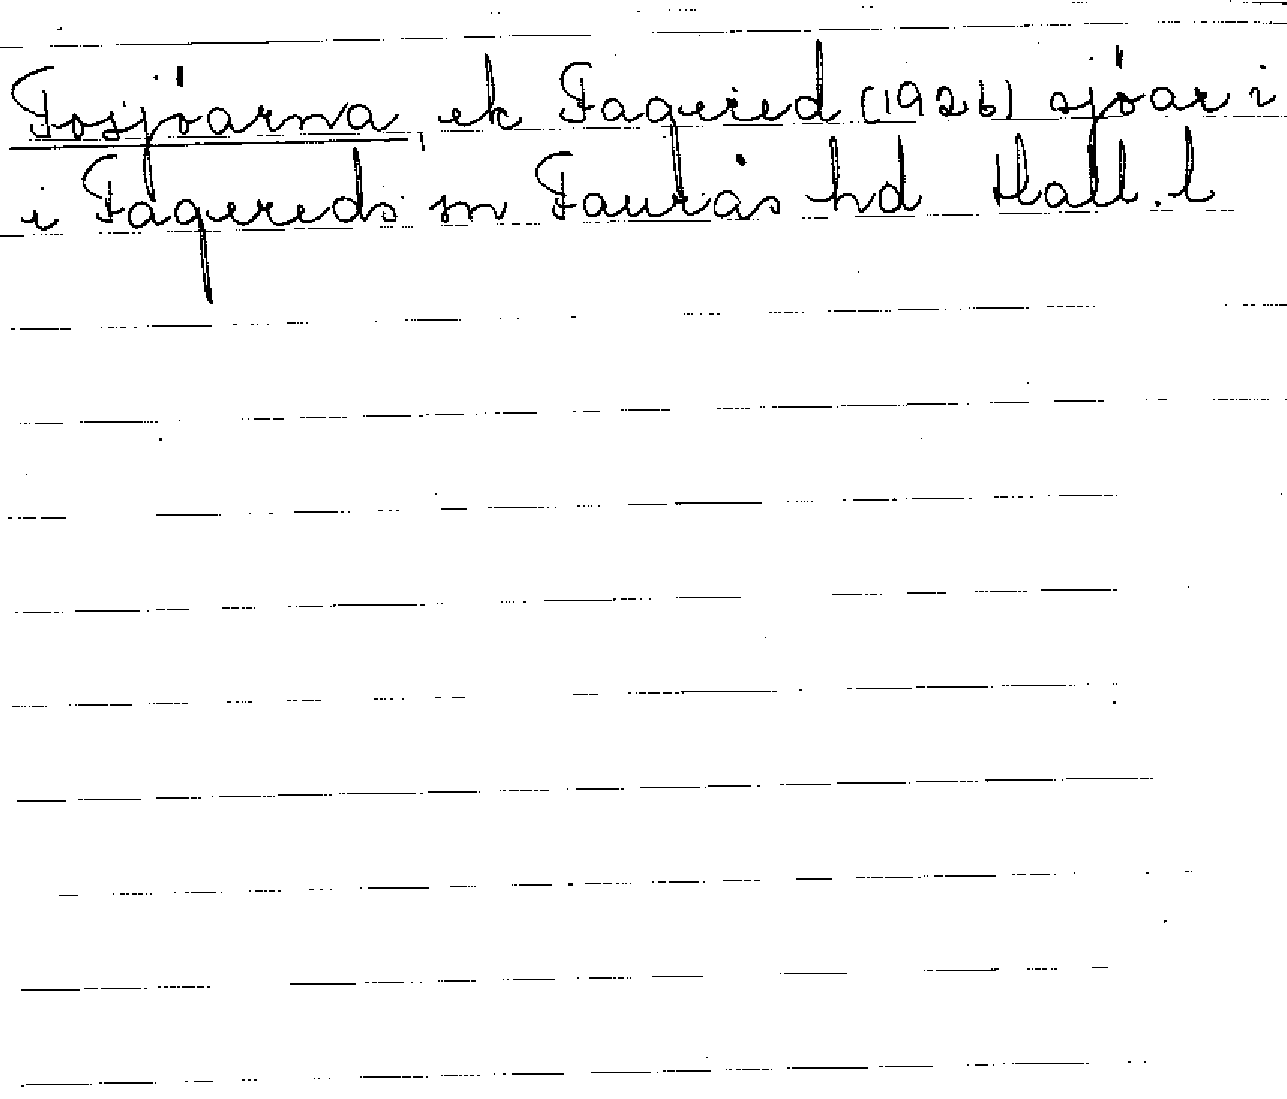 Fosjöarna, ek Fagered (1926) sjöar i
i Fagereds sn Faurås hd Hall. l